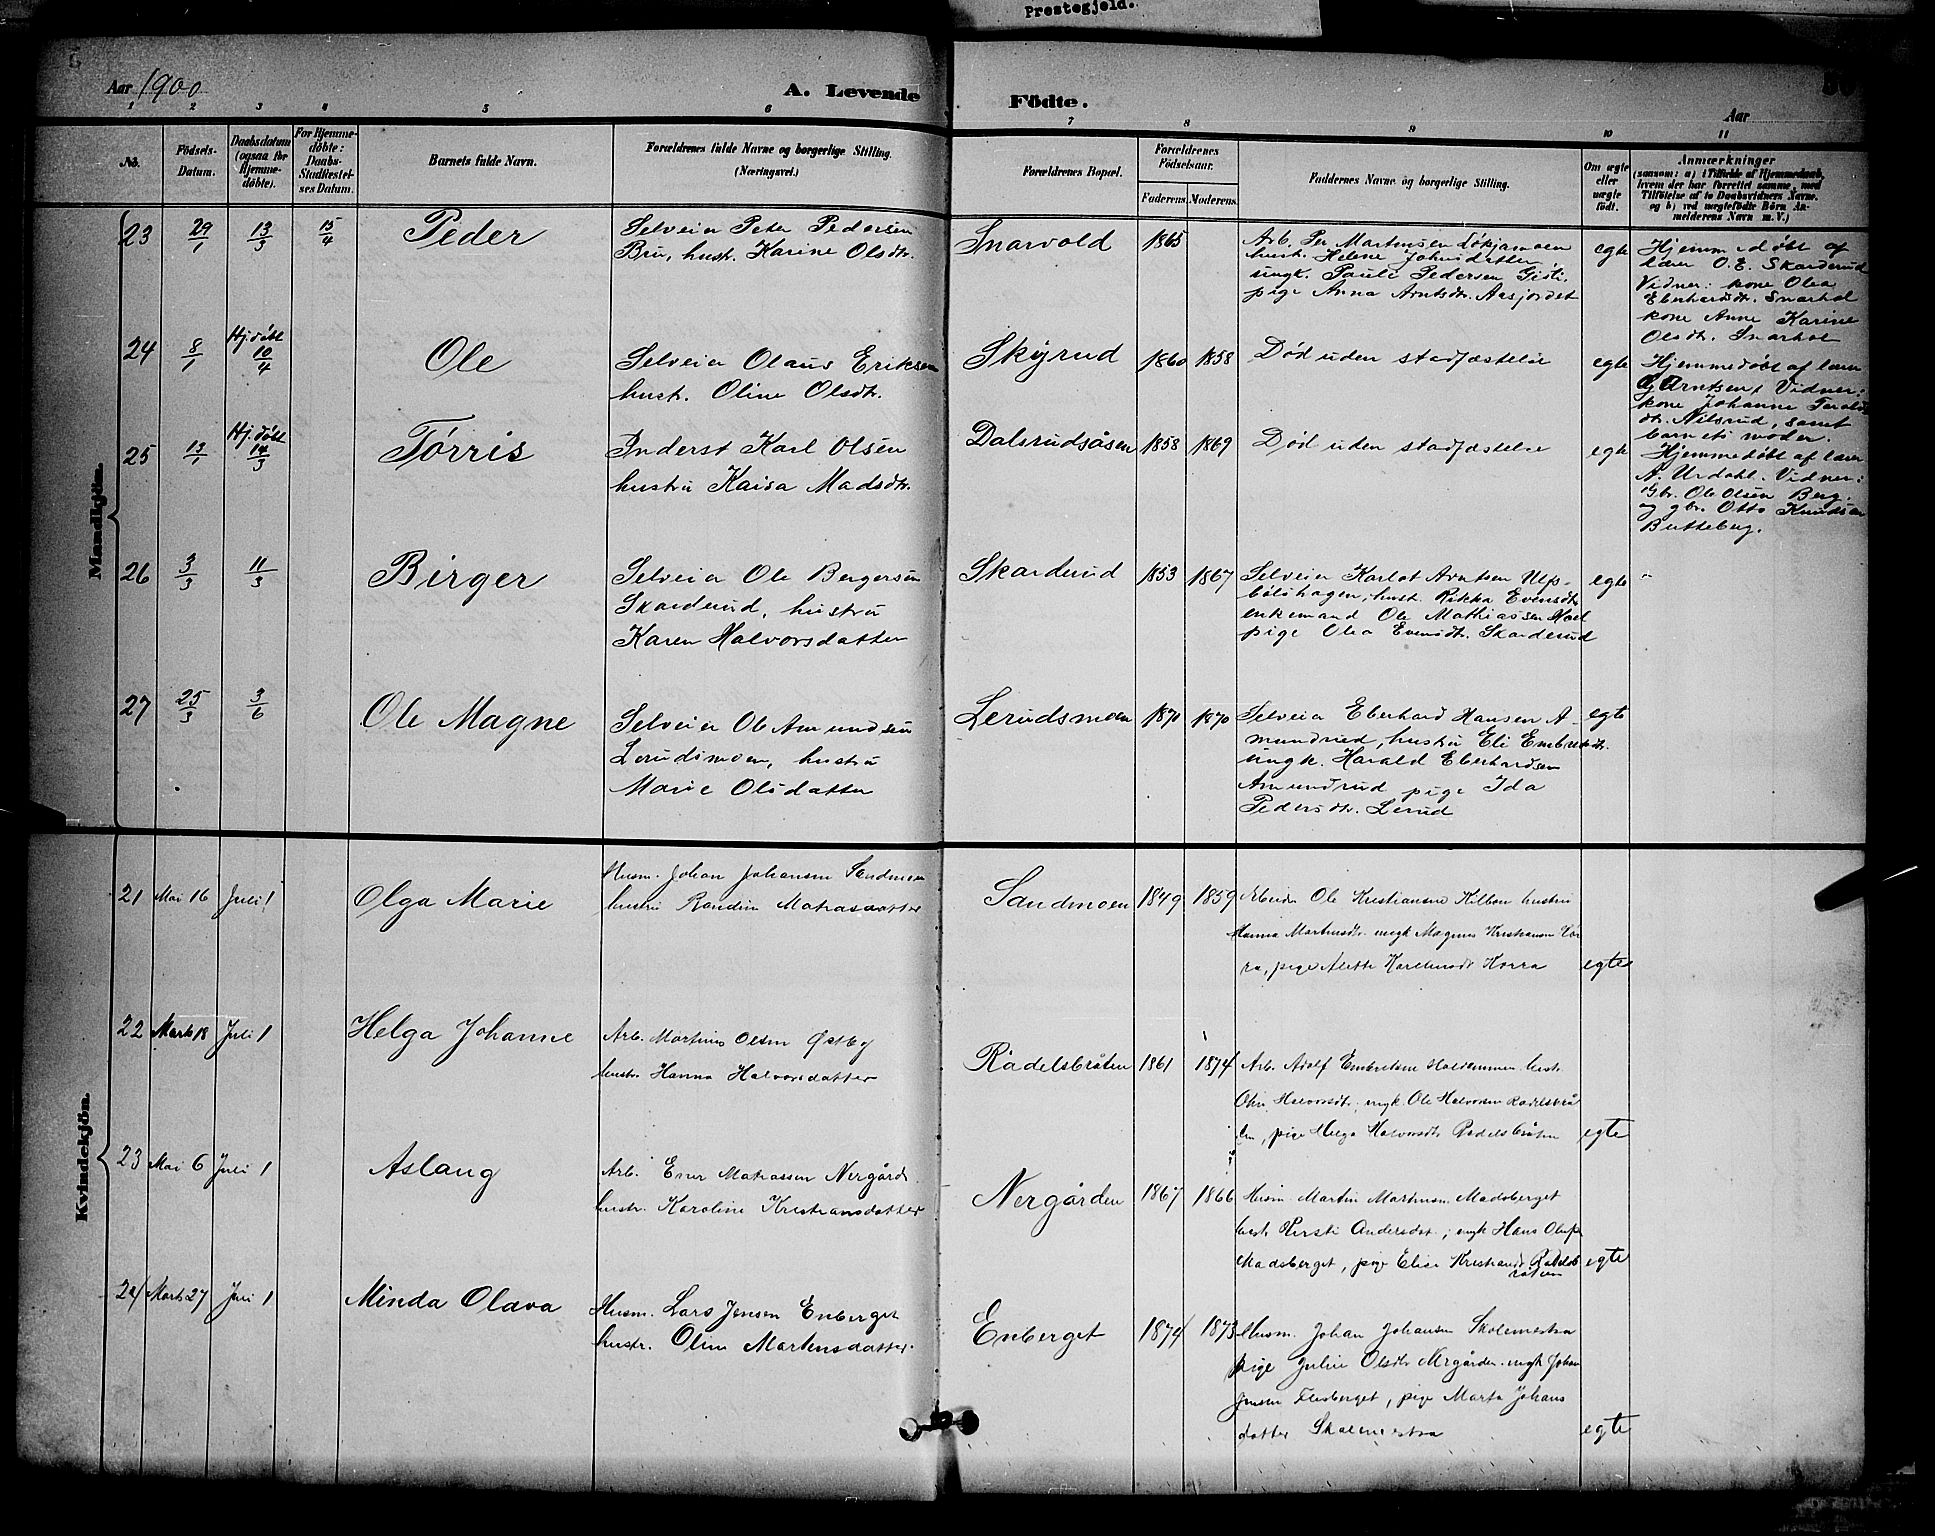 Prestegjeld.
Aar 1900
A. Levende Födte.
Aar
1 2 3 4 5 6 7 8 9 10 11
No.
Födsels-
Datum.
Daabsdatum
(ogsaa for
Hjemme-
döbte).
For Hjemme-
döbte:
Daabs-
Stadfæstel-
ses Datum.
Barnets fulde Navn.
Forældrenes fulde Navne og borgerlige Stilling.
(Næringsvei.)
Forældrenes Bopæl.
Forældrenes
Födselsaar.
Faderens. Moderens.
Faddernes Navne og borgerlige Stilling.
Om ægte
eller
uægte
født.
Anmærkninger
(saasom: a) i Tilfælde af Hjemmedaab,
hvem der har forrettet samme, med
Tilföielse af to Daabsvidners Navne,
og b) ved uægtefödte Börn An-
melderens Navn m. V.)
Mandkjön.
23 29/1 13/3 15/4 Peder
Selveier Peter Pedersen
Bru, hust. Karine Olsdtr.
Snarvold 1865
Arb. Per Martinsen
hust. Helene Johnsdatter
ungk. Paule Pedersen
pige Anna Arntsdtr. Aasjordet
egte
Hjemmedøbt af
lærer O. E. Skarderud
Vidner: kone Olea
Eberhardsdtr. Snarhol
kone Anne Karine
Olsdtr. Snarhol
24 8/1 Hj.døbt 10/4 Ole
Selveier Olaus Eriksen
hust. Oline Olsdtr.
Skyrud 1860 1858 Død uden stadfæstelse egte
Hjemmedøbt af lærer
G. Arntsen, Vidner:
kone Johanne
dtr. Nilsrud, samt
barnets moder.
25 13/1 Hj.døbt 14/3 Tørris
Inderst Karl Olsen
hustru Kaisa Madsdtr.
Dalsrudsåsen 1858 1869 Død uden stadfæstelse egte
Hjemmedøbt af lærer
A. Urdahl. Vidner:
Gbr. Ole Olsen Berg.
og gbr. Otto Knudsen
Butteberg.
26 3/3 11/3 Birger
Selveier Ole Bergersen
Skarderud, hustru
Karen Halvorsdatter
Skarderud 1853 1867
Selveier Karlot Arntsen Ulp-
bølshagen, hust. Rikka Evensdtr.
enkemand Ole Mathiassen
pige Olea Evensdtr. Skarderud
egte "
27 25/3 3/6 Ole Magne
Selveier Ole Amundsen
Lerudsmoen, hustru
Marie Olsdatter
Lerudsmoen 1870 1870
Selveier Eberhard Hansen A-
mundrud, hustru Eli Embretsdtr.
ungk. Harald Eberhardsen
Amundrud pige Ida
Pedersdtr. Lerud
egte
Kvindekjön.
21 Mai 16 Juli 1 Olga Marie
Husm. Johan Johansen Sandmoen
hustru Randine
Sandmoen 1849 1859
Arbeider Ole Kristiansen hustru
Hanna Martinsdtr. ungk Magnus Kristiansen
pige Alette Kareliusdtr Horra
egte
22 Marts 18 Juli 1 Helga Johanne
Arb. Martinus Olsen Østby
hustr. Hanna Halvorsdatter
Rådelsbråten 1861 1874
Arb. Adolf Embretsen hustr.
Halvorsdtr., ungk. Ole Halvorsen Radelsbrå
ten, pige Helga Halvorsdtr Radelsbråten
egte
23 Mai 6 Juli 1 Aslaug
Arb. Nergården
hustr. Karoline Kristiansdatter
Nergården 1867 1866
Husm. Martin Martinsen Madsberget
hust. Kersti Andersdat.; ungk Hans
Madsberget, pige Elise Radels
bråten
egte
24 Marts 27 Juli 1 Minda Olava
Husm. Lars Jensen Enberget
hustr. Oline Martinsdatter.
Enberget 1874 1873
Husm. Johan Johansen Skolemestra
pige Julie Olsdtr Nergården. ungk Johan
Jensen Flisberget, pige Marta Johans
datter Skolemestra
egte